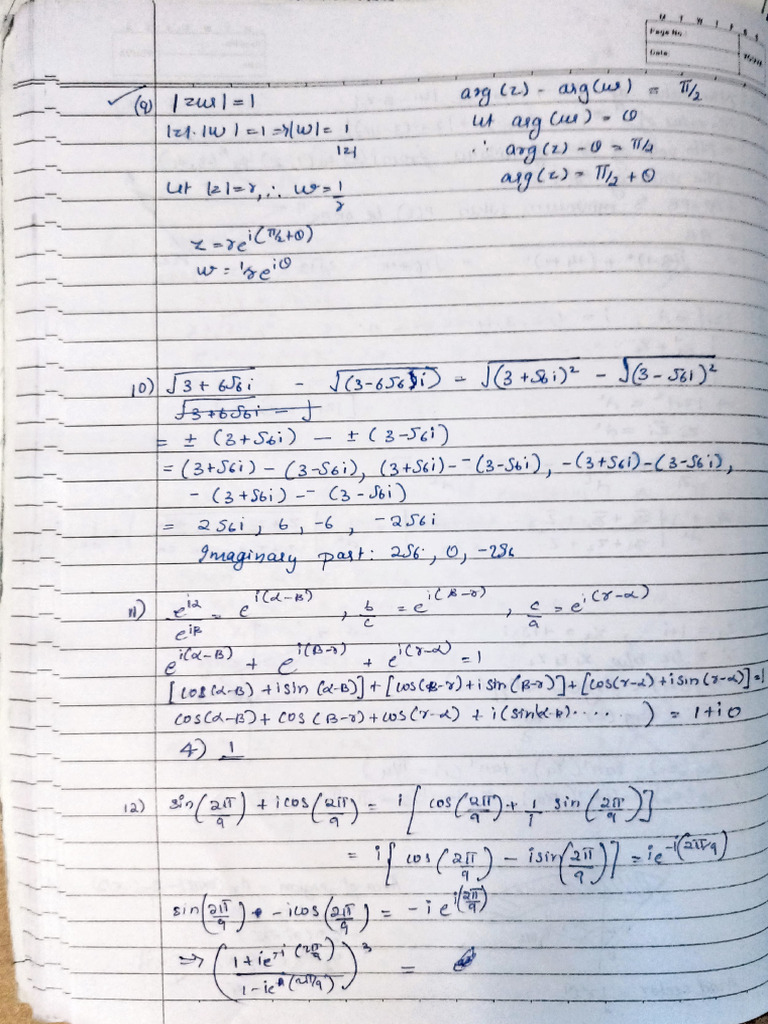 Page No.:
Date:
(9) |zw| = 1
|z|.|w| = 1 ⇒ |w| = 1/|z|
let |z| = r, ∴ w = 1/r
z = re^{i(π/2+θ)}
w = 1/r e^{iθ}
arg(z) - arg(w) = π/2
let arg(w) = θ
∴ arg(z) - θ = π/2
arg(z) = π/2 + θ
10) √(3 + 6√6 i) - √(3-6√6 i) = √(3+√6i)² - √(3-√6i)²
√(3+6√6i) - √
= ± (3+√6i) - ± (3-√6i)
= (3+√6i) - (3-√6i), (3+√6i) - -(3-√6i), -(3+√6i) - (3-√6i),
- (3+√6i) - - (3-√6i)
= 2√6i, 6, -6, -2√6i
Imaginary part: 2√6, 0, -2√6
11) e^{iα}/e^{iβ} = e^{i(α-β)}, b/c = e^{i(β-γ)}, c/a = e^{i(γ-α)}
e^{i(α-β)} + e^{i(β-γ)} + e^{i(γ-α)} = 1
[cos(α-β) + isin(α-β)] + [cos(β-γ) + isin(β-γ)] + [cos(γ-α) + isin(γ-α)] = 1
cos(α-β) + cos(β-γ) + cos(γ-α) + i(sin(α-β) ..... ) = 1+i0
4) 1
12) sin(2π/9) + icos(2π/9) = i[cos(2π/9) + 1/i sin(2π/9)]
= i[cos(2π/9) - isin(2π/9)] = ie^{-i(2π/9)}
sin(2π/9) - icos(2π/9) = -ie^{i(2π/9)}
⇒ ((1+ie^{-i(2π/9)})/(1-ie^{i(2π/9)}))³ =